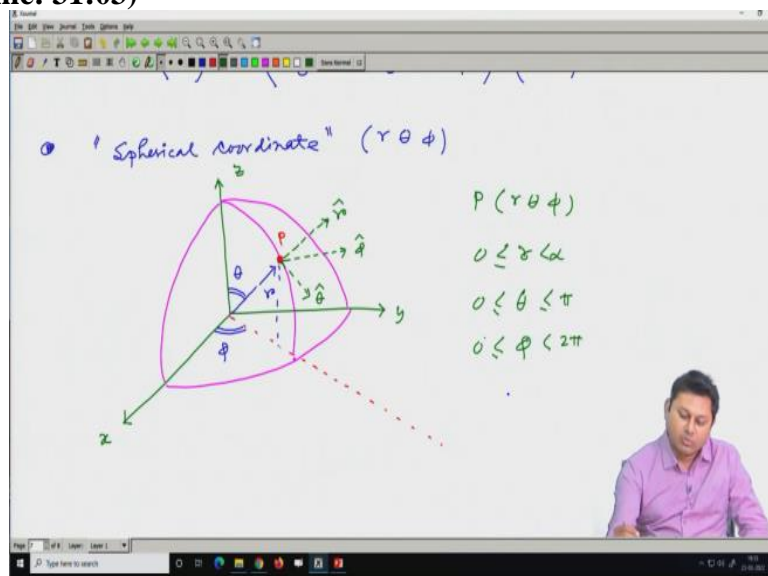 ne: 31:03)
Journal
File Edit View Journal Tools Options Help
" Spherical coordinate" (r θ φ)
z
P
r̂
φ̂
θ̂
θ
r
φ
y
x
P (r θ φ)
0 ≤ r < α
0 ≤ θ ≤ π
0 ≤ φ < 2π
Page 7 of 8 Layer: Layer 1
Type here to search